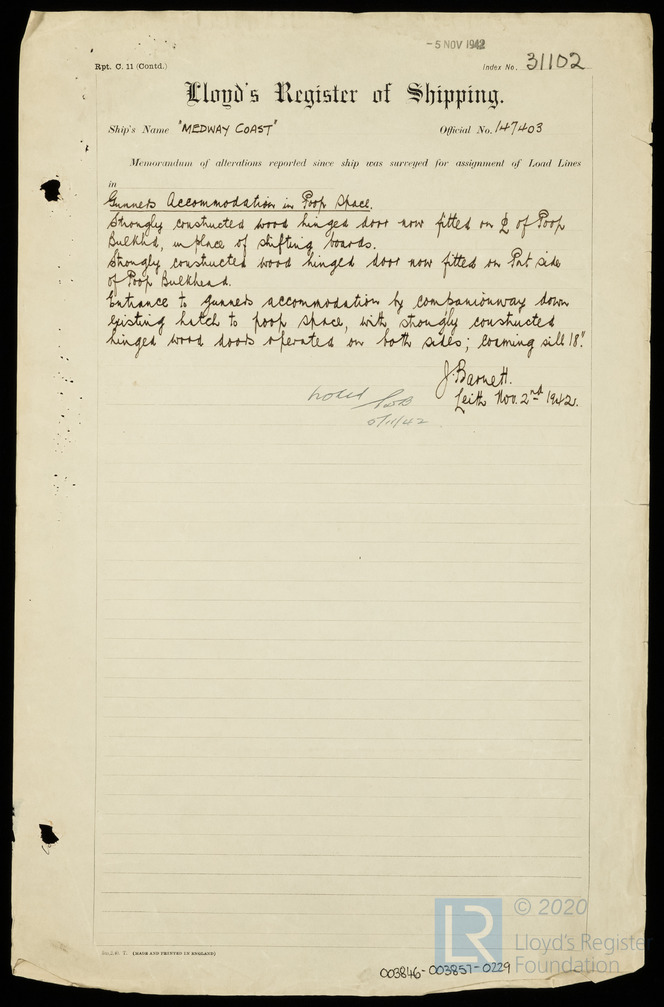 - 5 NOV 1942
Rpt. C. 11 (Contd.)
Index No. 31102
Lloyd's Register of Shipping.
Ship's Name "MEDWAY COAST" Official No. 147403
Memorandum of alterations reported since ship was surveyed for assignment of Load Lines
in
Gunners Accommodation in Poop Space.
Strongly constructed wood hinged door now fitted on ℄ of Poop
Bulkhd, in place of shifting boards.
Strongly constructed wood hinged door now fitted on Port side
of Poop Bulkhead.
Entrance to gunners accommodation by companionway down
existing hatch to poop space, with strongly constructed
hinged wood doors operated on both sides; coaming sill 18".
J. Barnett.
Leith Nov. 2nd 1942.
noted
5/11/42
(MADE AND PRINTED IN ENGLAND)
LR
© 2020
Lloyd's Register
Foundation
003846-003857-0229